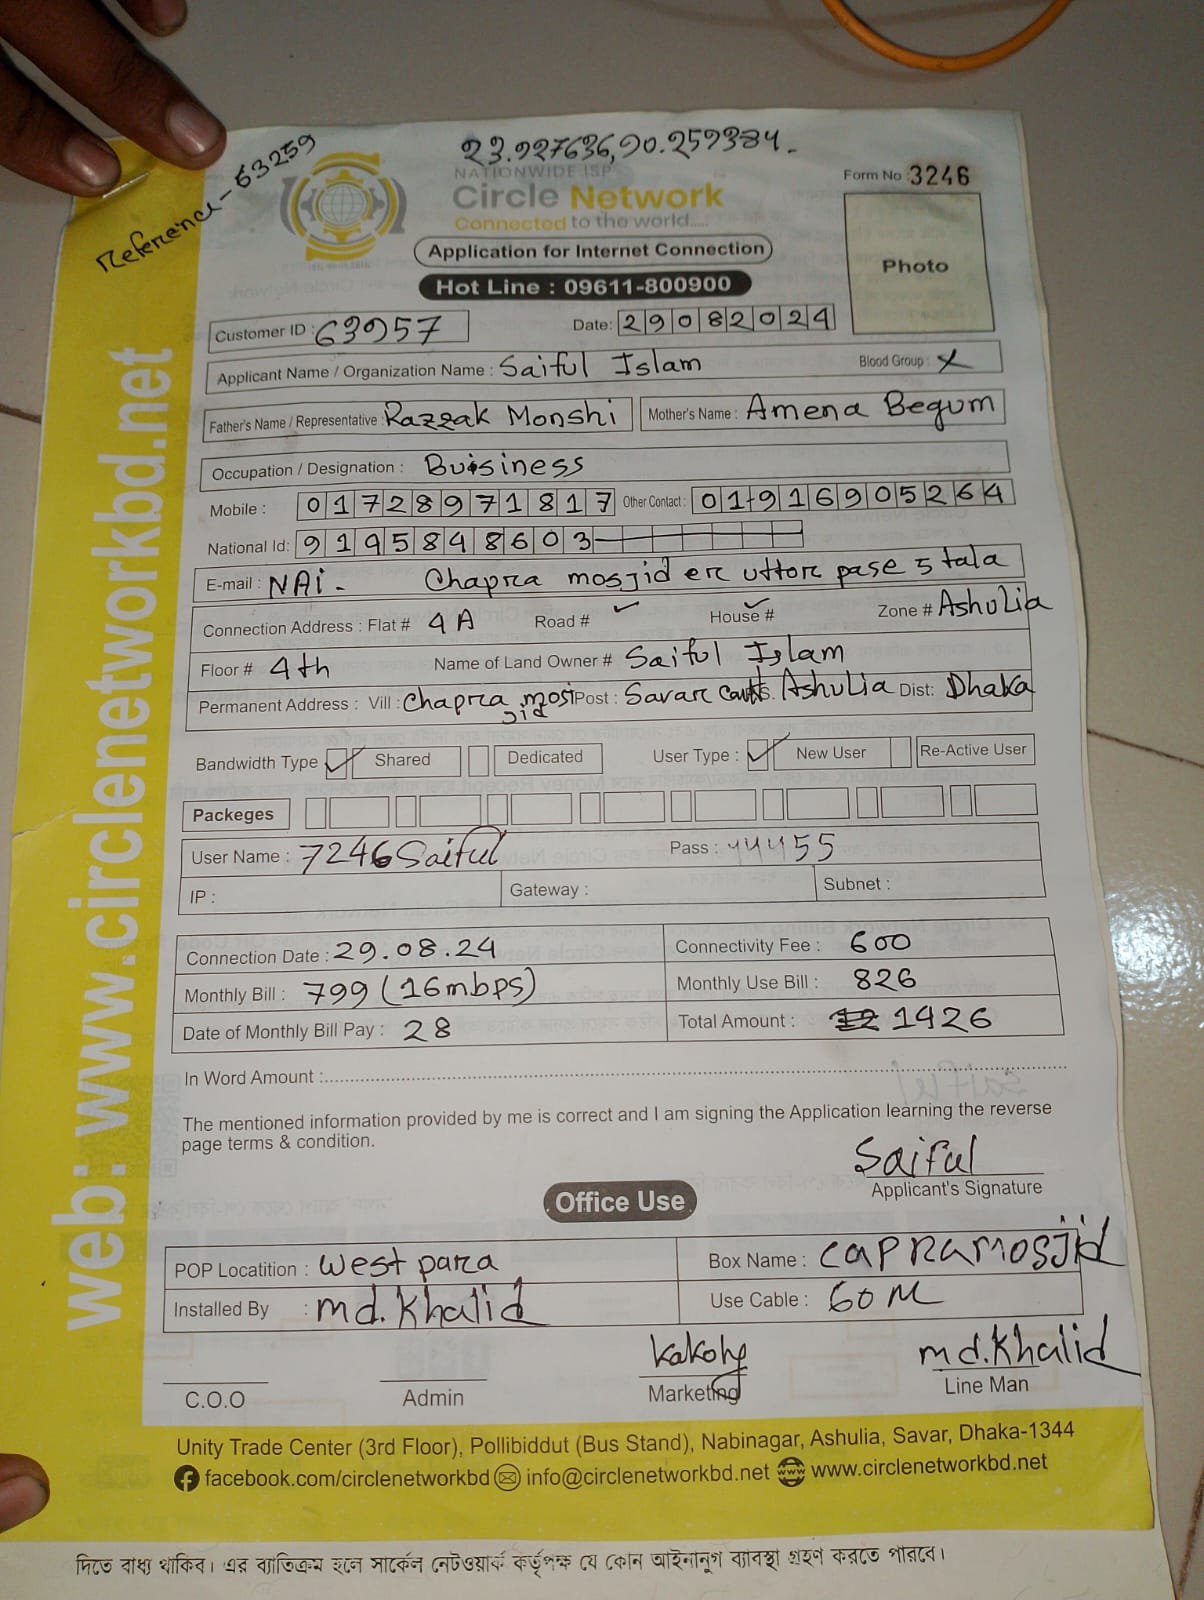 Reference-63259
23.927636,90.259384.
NATIONWIDE ISP
Circle Network
Connected to the world.....
Form No 3246
Application for Internet Connection
Photo
Hot Line : 09611-800900
Customer ID : 63957
Date: 29082024
Applicant Name / Organization Name : Saiful Islam Blood Group : X
Father's Name / Representative : Razzak Monshi Mother's Name : Amena Begum
Occupation / Designation : Buisiness
Mobile : 01728971817 Other Contact : 01916905264
National Id: 9195848603
E-mail : NAi - Chapra mosjid er uttor pase 5 tala
Connection Address : Flat # 4A Road # ✓ House # ✓ Zone # Ashulia
Floor # 4th Name of Land Owner # Saiful Islam
Permanent Address : Vill : Chapra mosjid Post : Savar Ashulia Dist: Dhaka
Bandwidth Type ✓ Shared Dedicated User Type : ✓ New User Re-Active User
Packeges
User Name : 7246Saiful Pass : 44455
IP : Gateway : Subnet :
Connection Date : 29.08.24 Connectivity Fee : 600
Monthly Bill : 799 (16mbps) Monthly Use Bill : 826
Date of Monthly Bill Pay : 28 Total Amount : 1426
In Word Amount :
The mentioned information provided by me is correct and I am signing the Application learning the reverse
page terms & condition.
Saiful
Applicant's Signature
Office Use
POP Locatition : West para Box Name : CAPRAMOSJid
Installed By : md.Khalid Use Cable : 60M
md.Khalid
C.O.O Admin Marketing Line Man
Unity Trade Center (3rd Floor), Pollibiddut (Bus Stand), Nabinagar, Ashulia, Savar, Dhaka-1344
facebook.com/circlenetworkbd info@circlenetworkbd.net www.circlenetworkbd.net
web: www.circlenetworkbd.net
দিতে বাধ্য থাকিব। এর ব্যতিক্রম হলে সার্কেল নেটওয়ার্ক কর্তৃপক্ষ যে কোন আইনানুগ ব্যাবস্থা গ্রহণ করতে পারবে।